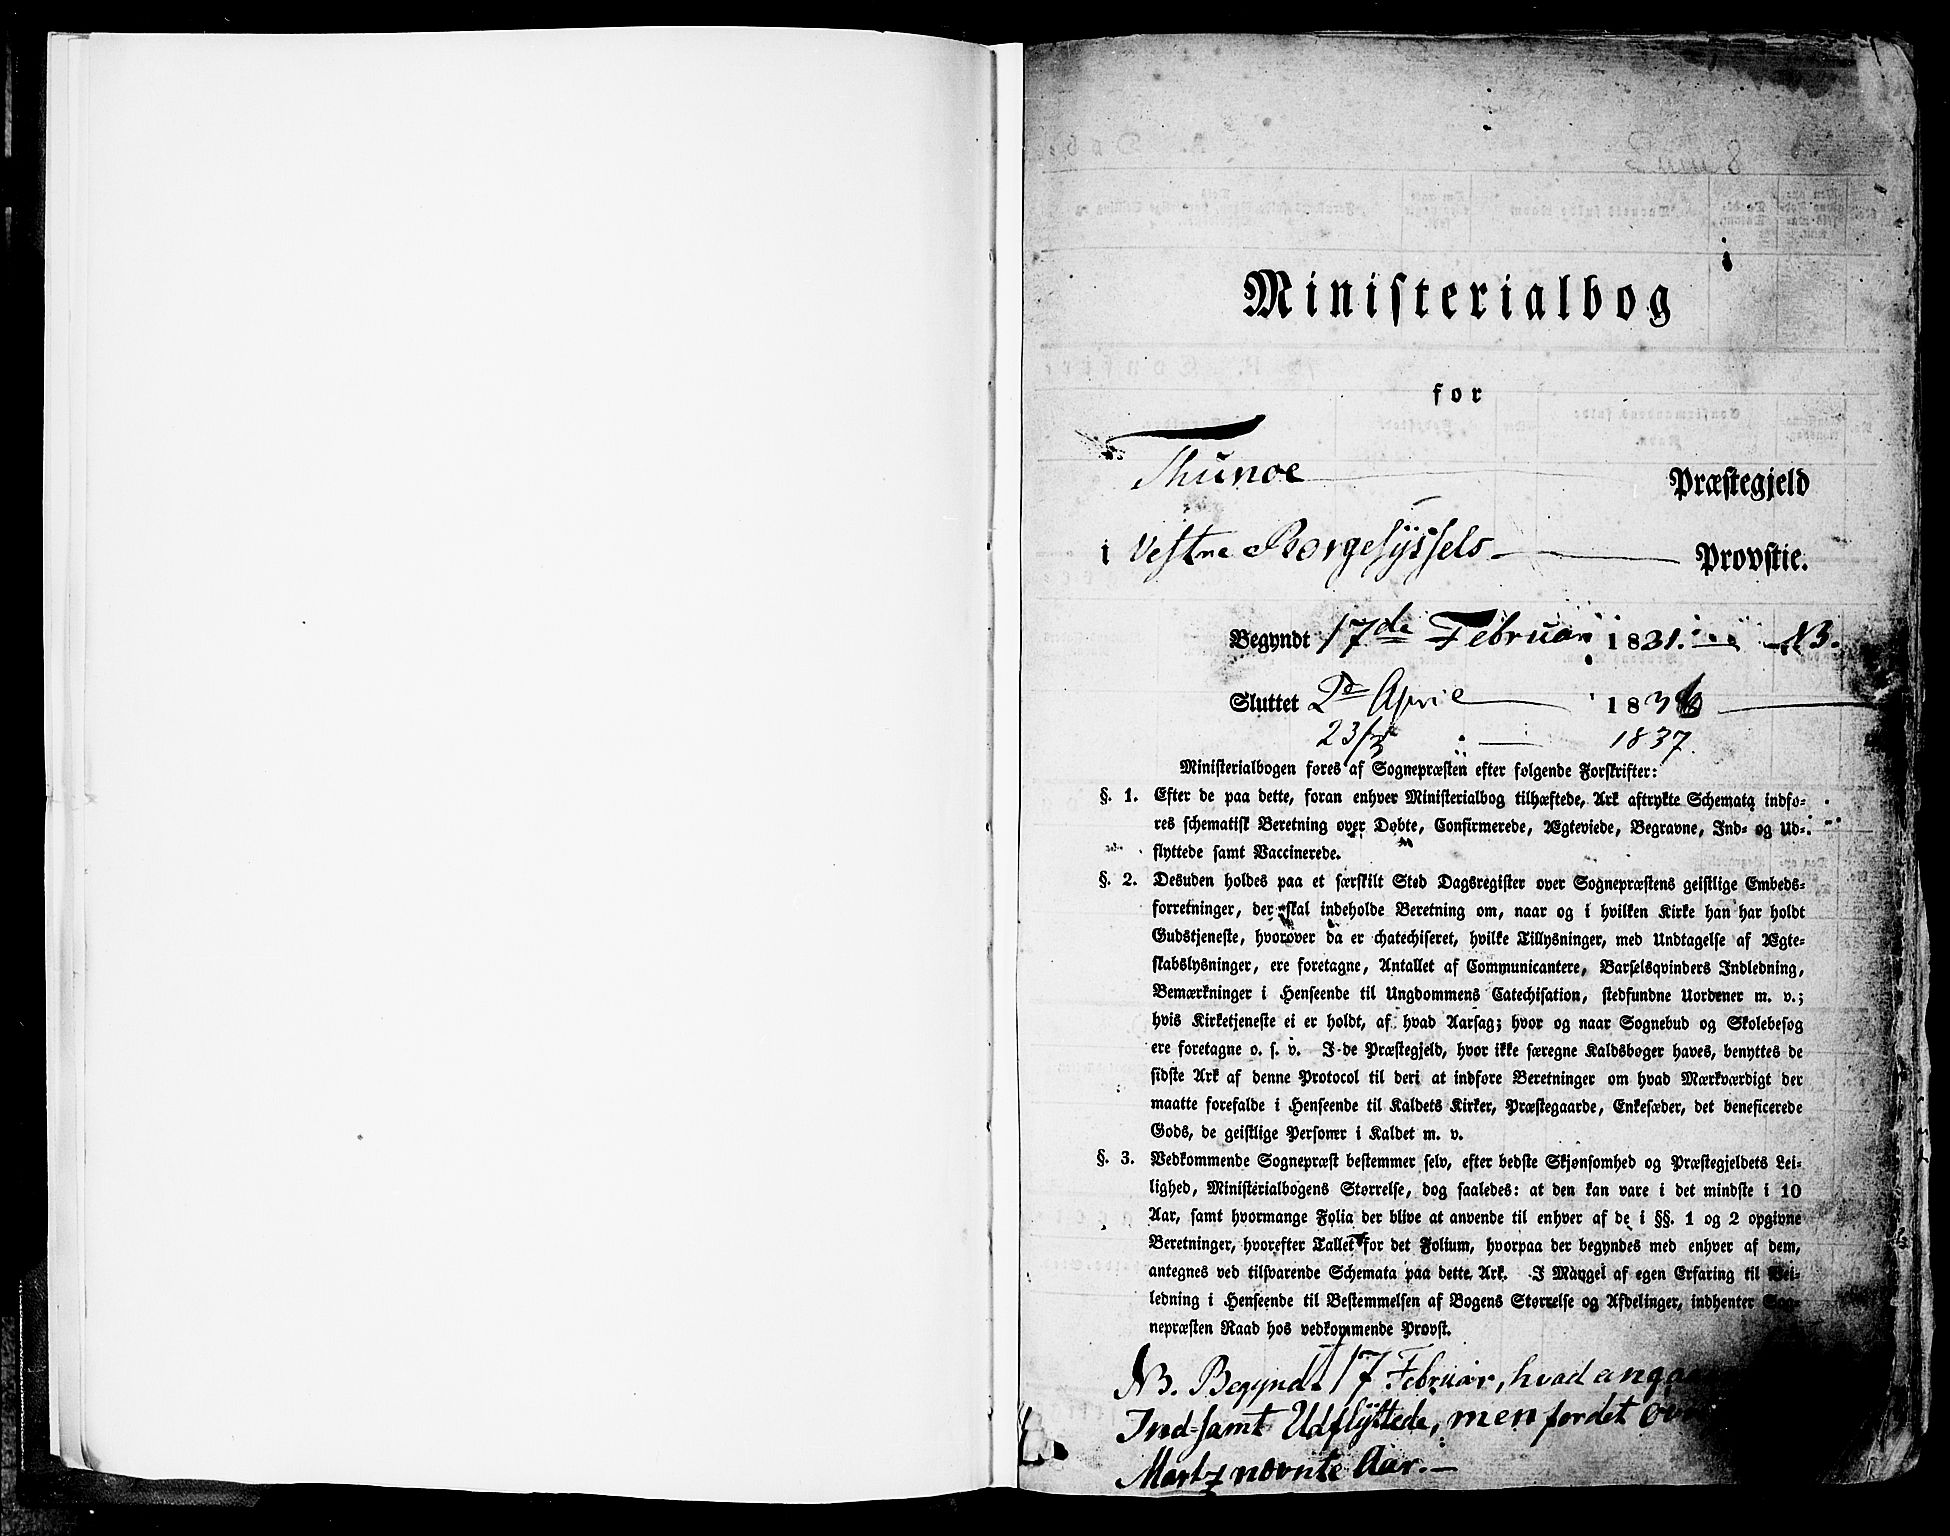 Ministerialbog
for
Thunøe Præstegjeld
i Vestre Borgesÿssels Provstie.
Begyndt 17de Februar 1831. NB.
Sluttet 2de April 183
23/3 1837.
Ministerialbogen føres af Sognepræsten efter følgende Forskrifter:
§. 1. Efter de paa dette, foran enhver Ministerialbog tilhæftede, Ark aftrykte Schemata indfø-
res schematisk Beretning over Døbte, Confirmerede, Ægteviede, Begravne, Ind- og Ud-
flyttede samt Vaccinerede.
§. 2. Desuden holdes paa et særskilt Sted Dagsregister over Sognepræstens geistlige Embeds-
forretninger, der skal indeholde Beretning om, naar og i hvilken Kirke han har holdt
Gudstjeneste, hvorover da er chatechiseret, hvilke Tillysninger, med Undtagelse af Ægte-
skabslysninger, ere foretagne, Antallet af Communicantere, Barselqvinders Indledning,
Bemærkninger i Henseende til Ungdommens Catechisation, stedfundne Uordener m. v.;
hvis Kirketjeneste ei er holdt, af hvad Aarsag; hvor og naar Sognebud og Skolebesøg
ere foretagne o. s. v. I de Præstegjeld, hvor ikke særegne Kaldsbøger haves, benyttes de
sidste Ark af denne Protocol til deri at indføre Beretninger om hvad Mærkværdigt der
maatte forefalde i Henseende til Kaldets Kirker, Præstegaarde, Enkesæder, det beneficerede
Gods, de geistlige Personer i Kaldet m. v.
§. 3. Vedkommende Sognepræst bestemmer selv, efter bedste Skjønsomhed og Præstegjeldets Lei-
lighed, Ministerialbogens Størrelse, dog saaledes: at den kan vare i det mindste i 10
Aar, samt hvormange Folia der blive at anvende til enhver af de i §§. 1 og 2 opgivne
Beretninger, hvorefter Tallet for det Folium, hvorpaa der begyndes med enhver af dem,
antegnes ved tilsvarende Schemata paa dette Ark. I Mangel af egen Erfaring til Vei-
ledning i Henseende til Bestemmelsen af Bogens Størrelse og Afdelinger, indhenter Sog-
nepræsten Raad hos vedkommende Provst.
NB. Begyndt 17 Februar, hvad
Ind-samt Udflÿttede, men for det
Martz nævnte Aar.